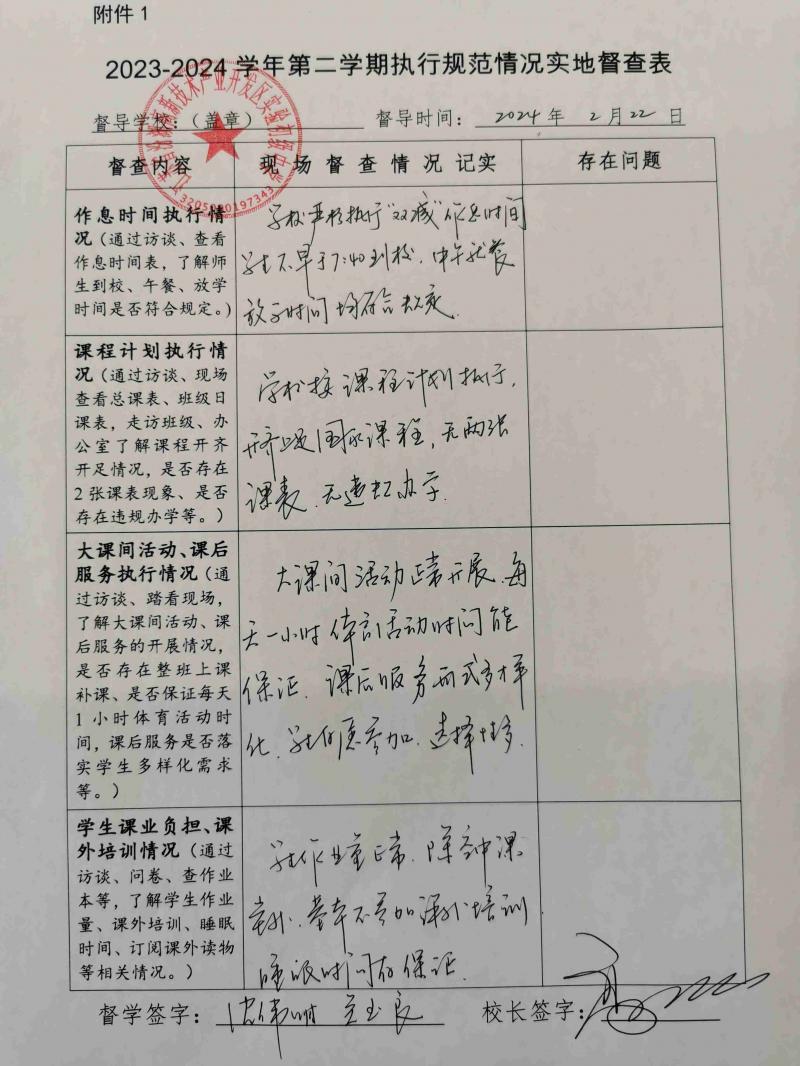 附件 1
2023-2024 学年第二学期执行规范情况实地督查表
督导学校：（盖章）
督导时间： 2024 年 2 月 22 日
督查内容
现场督查情况记实
存在问题
作息时间执行情
况（通过访谈、查看
作息时间表，了解师
生到校、午餐、放学
时间是否符合规定。）
学校严格执行“双减”作息时间
学生不早于7:40到校，中午就餐
放学时间均符合规定.
课程计划执行情
况（通过访谈、现场
查看总课表、班级日
课表，走访班级、办
公室了解课程开齐
开足情况，是否存在
2 张课表现象、是否
存在违规办学等。）
学校按课程计划执行，
开齐开足国家课程，无两张
课表、无违规办学.
大课间活动、课后
服务执行情况（通
过访谈、踏看现场，
了解大课间活动、课
后服务的开展情况，
是否存在整班上课
补课、是否保证每天
1 小时体育活动时
间，课后服务是否落
实学生多样化需求
等。）
大课间活动正常开展，每
天一小时体育活动时间能
保证、课后服务形式多样
化、学生自愿参加、选择
学生课业负担、课
外培训情况（通过
访谈、问卷、查作业
本等，了解学生作业
量、课外培训、睡眠
时间、订阅课外读物
等相关情况。）
学生作业量正常，
基本不参加课外培训
睡眠时间有保证.
督学签字：
校长签字：
3205080197343